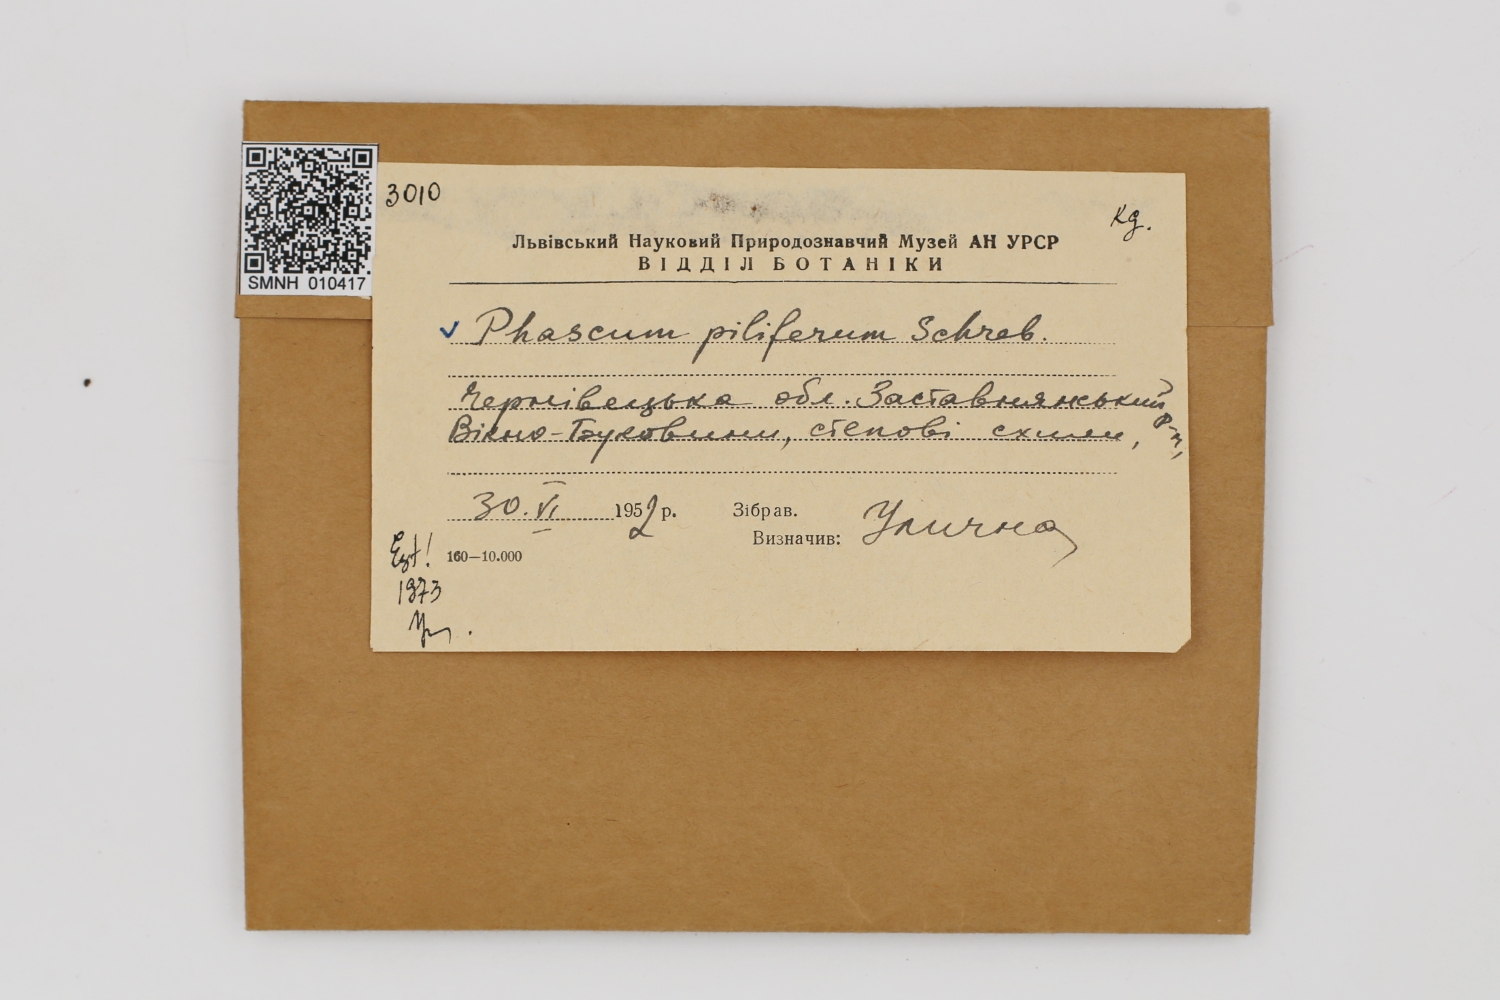 SMNH 010417
3010
Кд.
Львівський Науковий Природознавчий Музей АН УРСР
ВІДДІЛ БОТАНІКИ
✓ Phascum piliferum Schreb.
Чернівецька обл. Заставнянський р-н,
Вікно-Буковини, степові схили,
30.VI 1952 р. Зібрав.
Визначив: Улична
160—10.000
1973